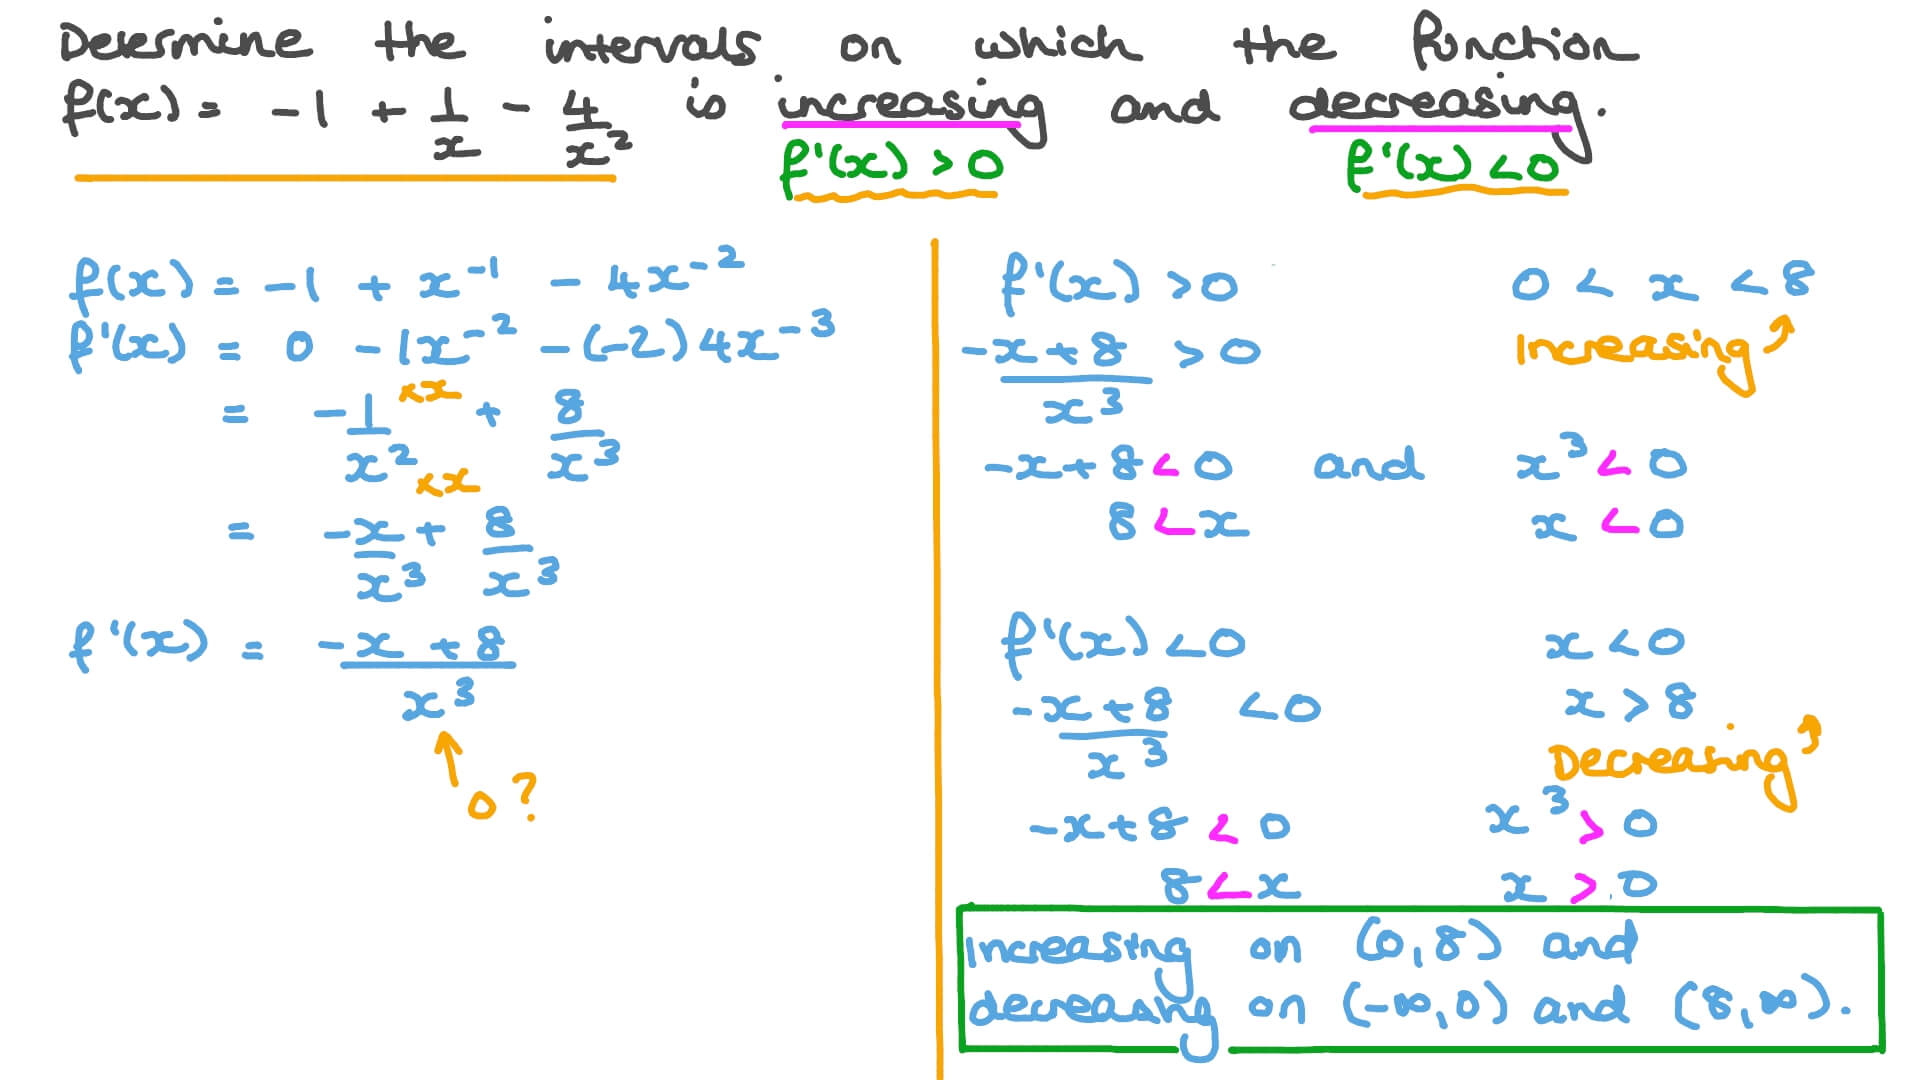 Determine the intervals on which the function
f(x) = -1 + 1/x - 4/x² is increasing and decreasing.
f'(x) > 0
f'(x) < 0
f(x) = -1 + x⁻¹ - 4x⁻²
f'(x) = 0 - 1x⁻² - (-2)4x⁻³
= -1/x² + 8/x³
×x
×x
= -x/x³ + 8/x³
f'(x) = (-x + 8)/x³
0?
f'(x) > 0
0 < x < 8
Increasing
(-x + 8)/x³ > 0
-x + 8 < 0 and x³ < 0
8 < x
x < 0
f'(x) < 0
x < 0
(-x + 8)/x³ < 0
x > 8
Decreasing
-x + 8 < 0
x³ > 0
8 < x
x > 0
Increasing on (0,8) and
decreasing on (-∞,0) and (8,∞).